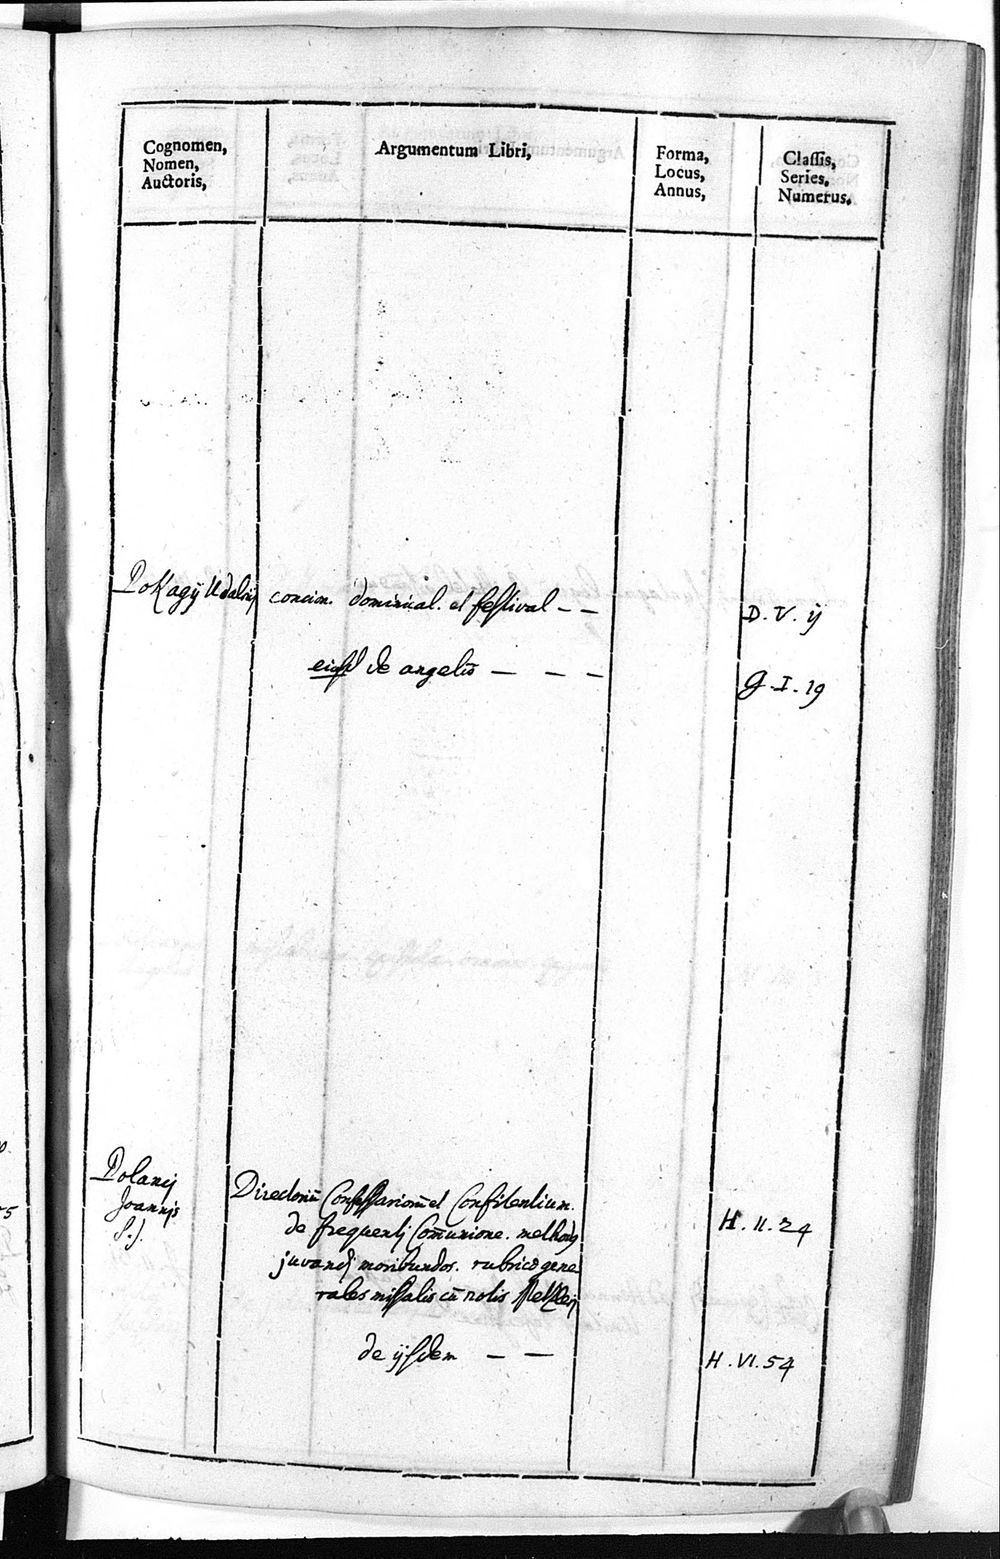 Cognomen,
Nomen,
Auctoris,
Argumentum Libri,
Forma,
Locus,
Annus,
Classis,
Series,
Numerus.
Pokagij Udalrij concion. dominical. et festival - - D. V. ij
eiusd de angelis - - - G. I. 19
Polancij
Joannis
S. J.
Directoriū Confessariorū et Confitentium.
de frequenti Com̄unione. methodus
juvandi moribundos. rubricæ gene
rales missalis cū notis H. II. 24
de ijsdem - - H. VI. 54